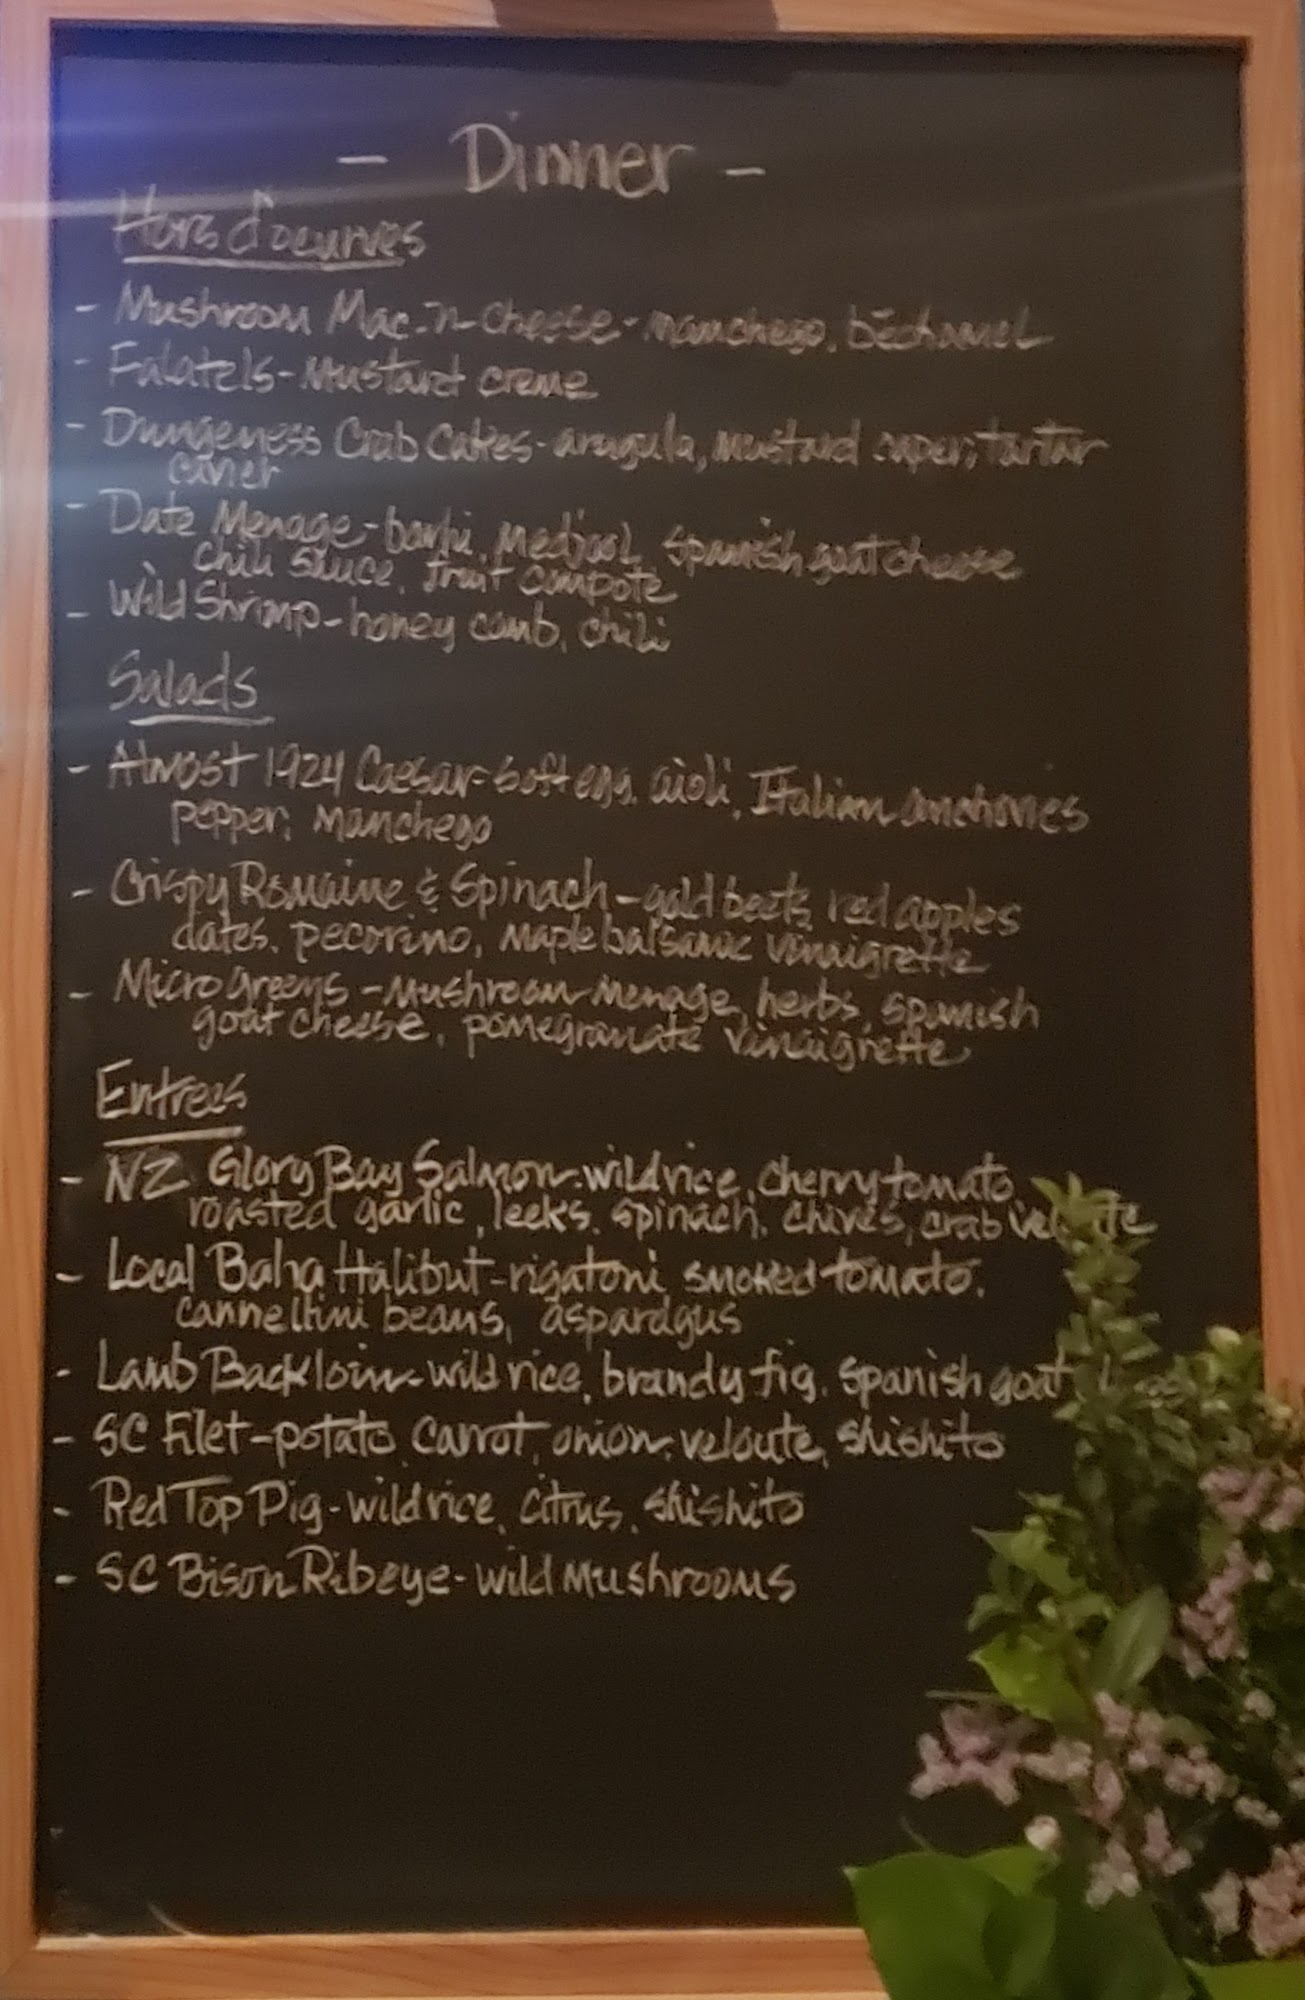 - Dinner -
Hors d'oeurves
- Mushroom Mac-n-cheese- manchego, béchamel
- Falafels - Mustard creme
- Dungeness Crab Cakes - arugula, mustard caper, tartar
caviar
- Date Menage - barhi, medjool, Spanish goat cheese
chili sauce, fruit compote
- Wild Shrimp - honey comb, chili
Salads
- Almost 1924 Caesar - soft egg, aioli, Italian anchovies
pepper, Manchego
- Crispy Romaine & Spinach - gold beets, red apples
dates, pecorino, maple balsamic vinaigrette
- Micro greens - Mushroom Menage, herbs, spanish
goat cheese, pomegranate vinaigrette
Entrees
- NZ Glory Bay Salmon - wild rice, cherry tomato,
roasted garlic, leeks, spinach, chives, crab
- Local Baha Halibut - rigatoni, smoked tomato,
cannellini beans, asparagus
- Lamb Backloin - wild rice, brandy fig, Spanish goat
- SC Filet - potato, carrot, onion, veloute, shishito
- Red Top Pig - wild rice, citrus, shishito
- SC Bison Ribeye - wild mushrooms